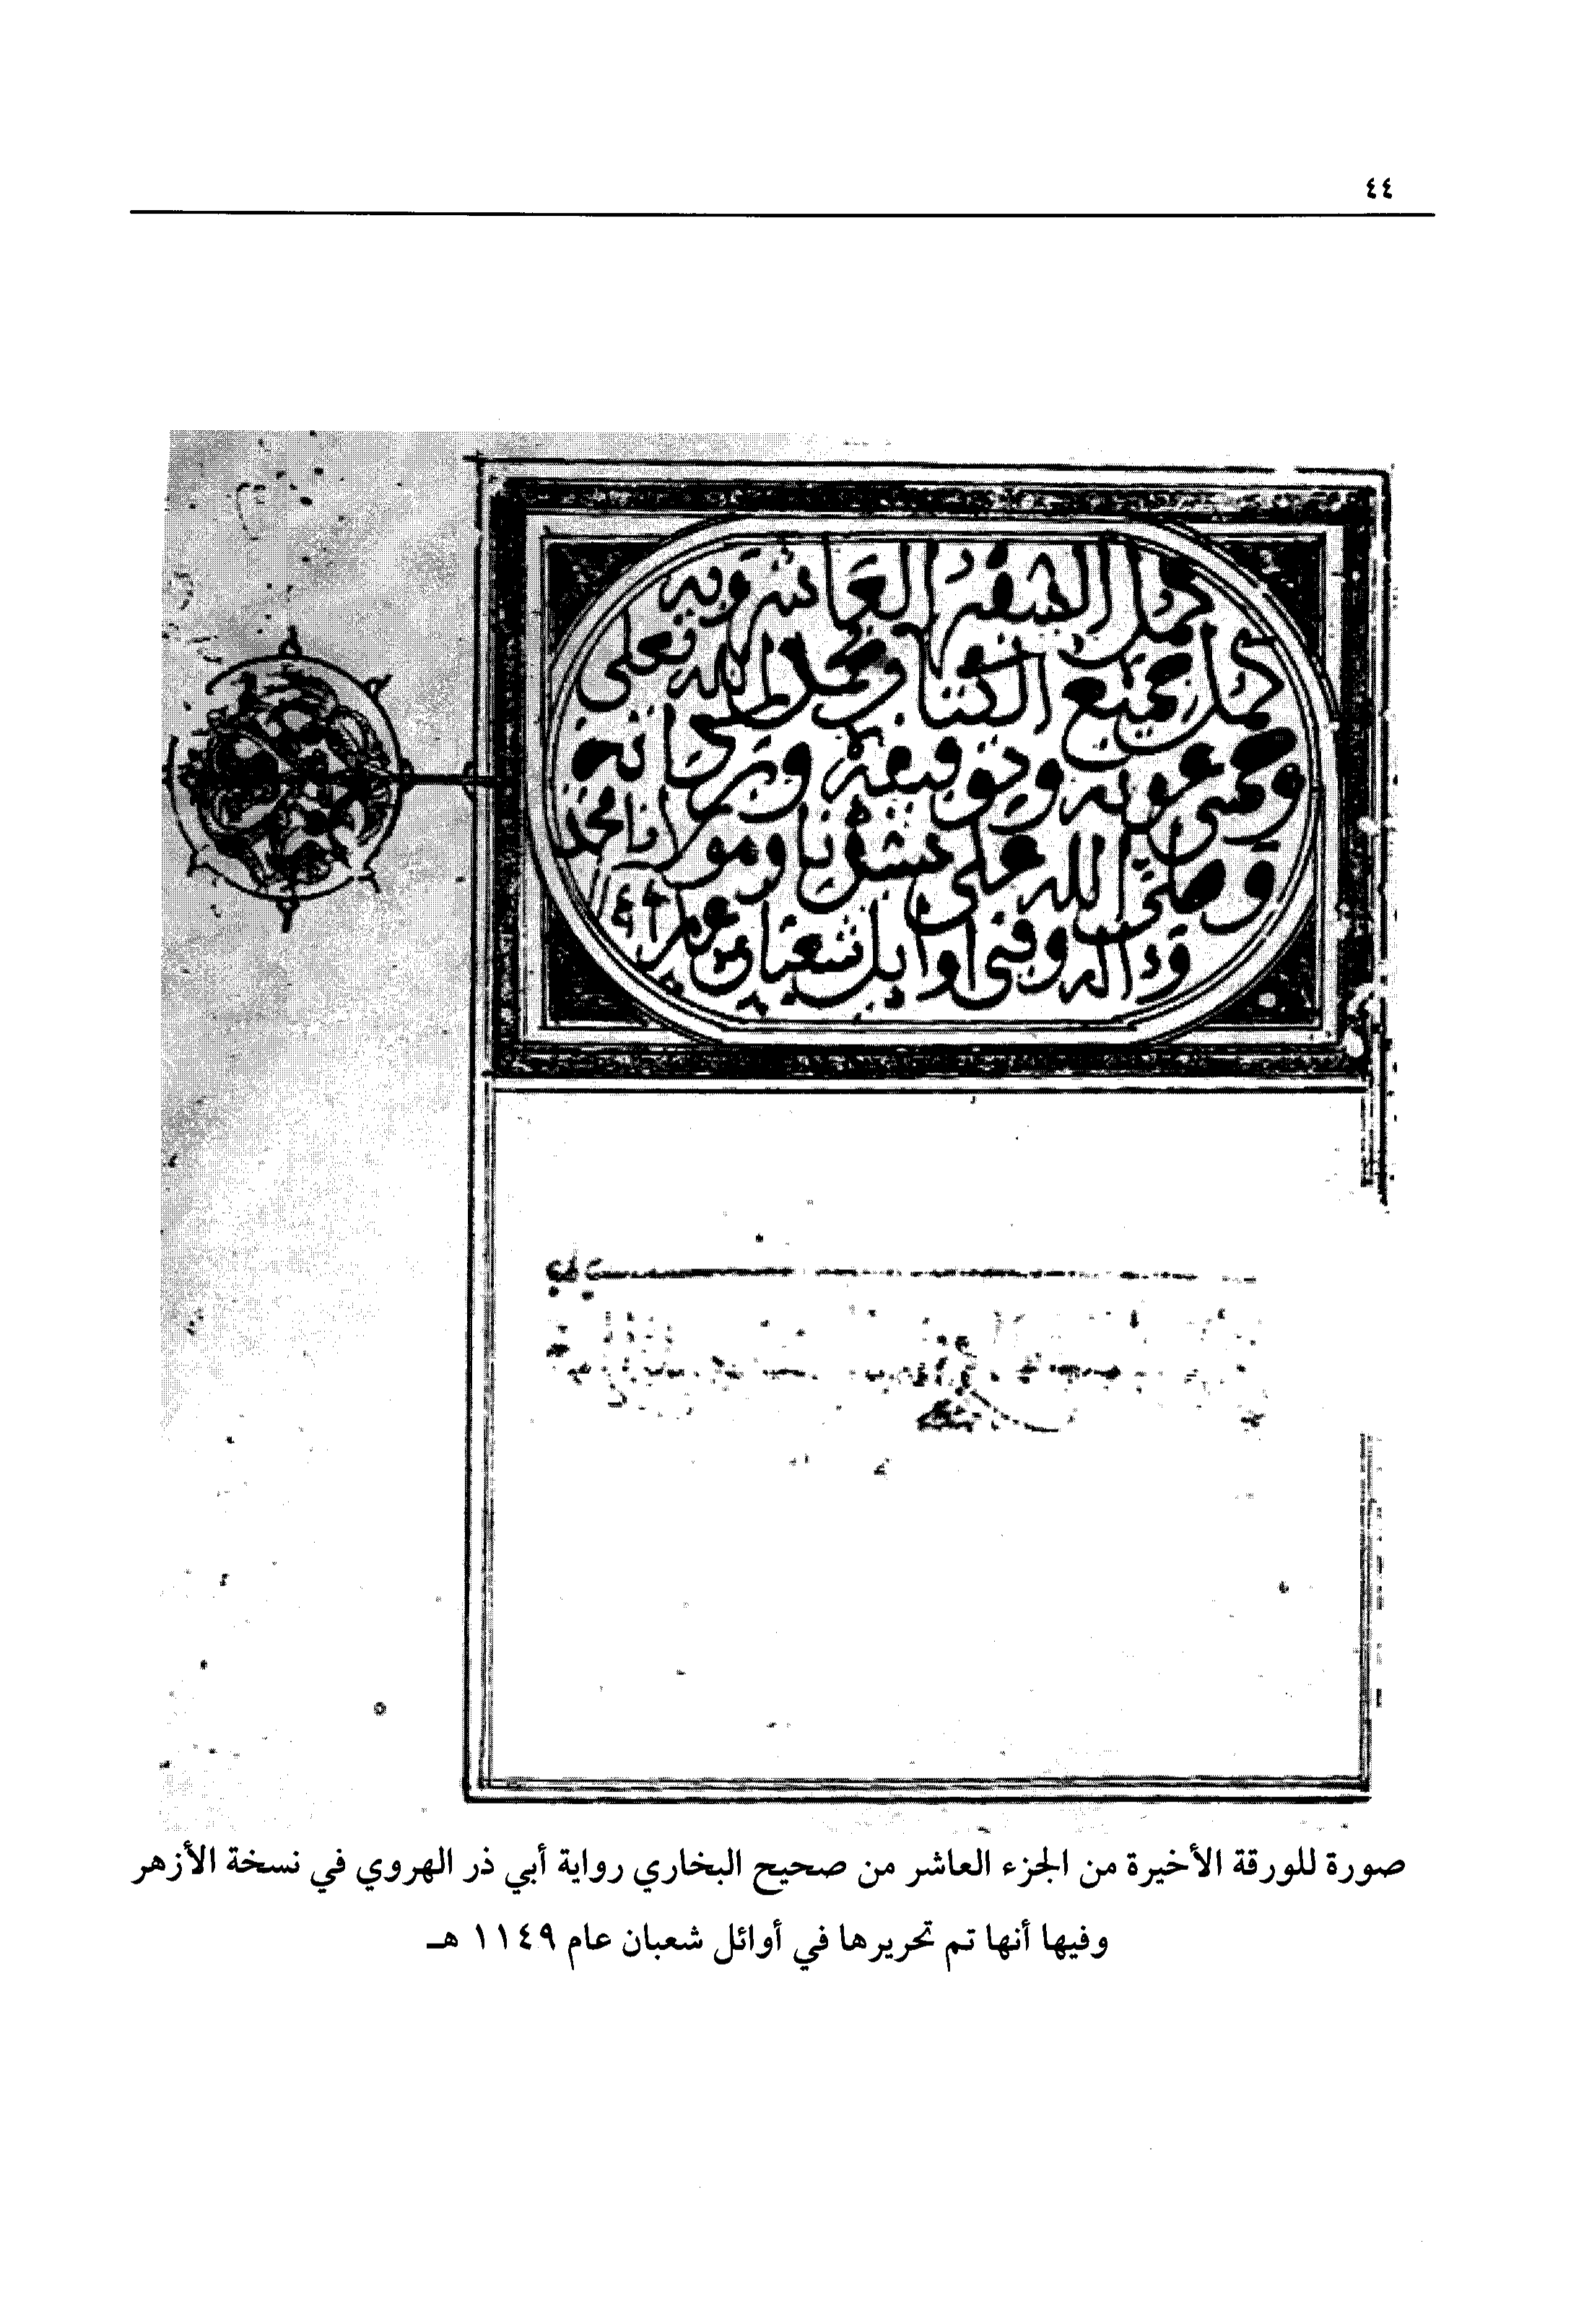 ٤٤
كمل السفر العاشر وبه
كمل جميع الكتاب بحمد الله تعلى
وحسن عونه وتوفيقه
وصلى الله على سيدنا ومولانا محمد
وءاله وفي أوايل شعبان عام ١١٤٩
صورة للورقة الأخيرة من الجزء العاشر من صحيح البخاري رواية أبي ذر الهروي في نسخة الأزهر
وفيها أنها تم تحريرها في أوائل شعبان عام ١١٤٩ هـ